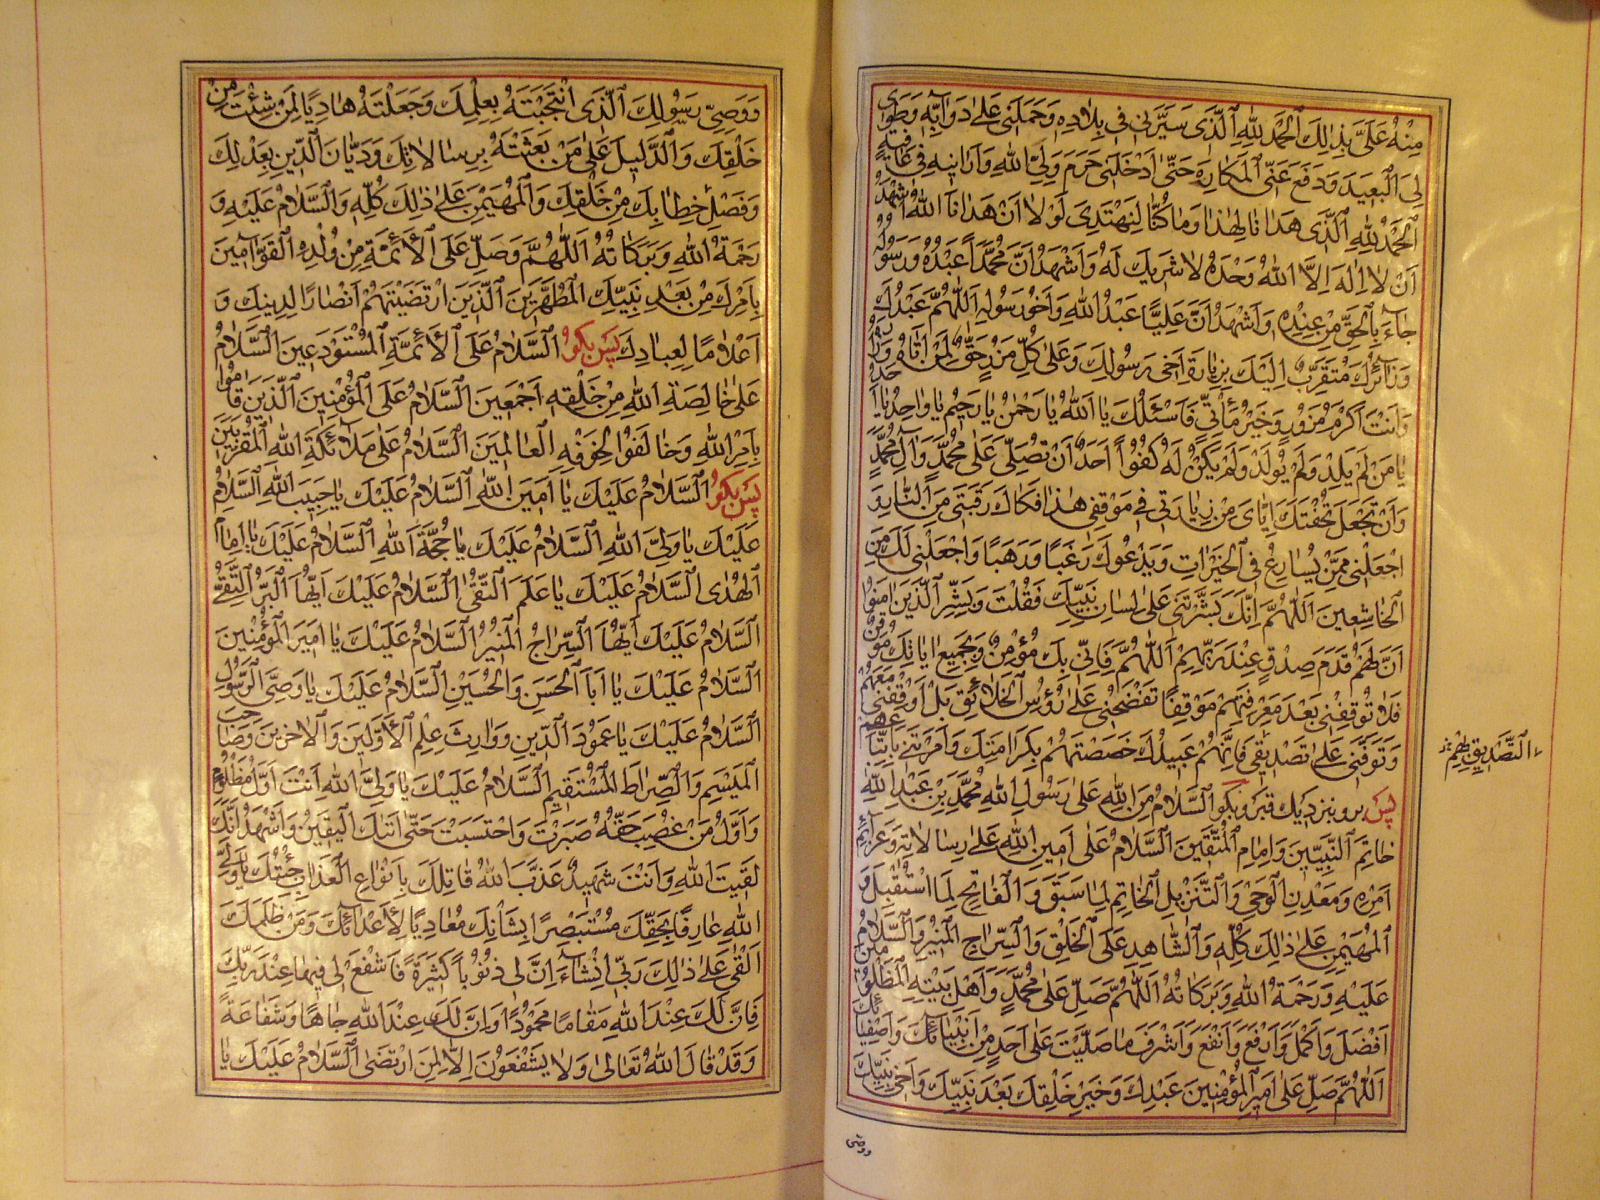 مِنْهُ عَلَیَّ بِذٰلِكَ اَلْحَمْدُ لِلّٰهِ الَّذی سَیَّرَنی فی بِلادِهِ وَحَمَلَنی عَلیٰ دَوَآبِّهِ وَطَویٰ
لِیَ الْبَعیدَ وَدَفَعَ عَنِّی الْمَکارِهَ حَتّیٰ اَدْخَلَنی حَرَمَ وَلِیِّ اللّٰهِ وَاَرانیهِ فی عافِیَةٍ
اَلْحَمْدُ لِلّٰهِ الَّذی هَدانا لِهٰذا وَما کُنّا لِنَهْتَدِیَ لَوْلا اَنْ هَدانَا اللّٰهُ اَشْهَدُ
اَنْ لا اِلٰهَ اِلَّا اللّٰهُ وَحْدَهُ لا شَریكَ لَهُ وَاَشْهَدُ اَنَّ مُحَمَّداً عَبْدُهُ وَرَسُولُهُ
جآءَ بِالْحَقِّ مِنْ عِنْدِهِ وَاَشْهَدُ اَنَّ عَلِیّاً عَبْدُ اللّٰهِ وَاَخُو رَسُولِهِ اَللّٰهُمَّ عَبْدُكَ
وَزآئِرُكَ مُتَقَرِّبٌ اِلَیْكَ بِزِیارَةِ اَخی رَسُولِكَ وَعَلیٰ کُلِّ مَزُورٍ حَقٌّ لِمَنْ اَتاهُ وَزارَهُ
وَاَنْتَ اَکْرَمُ مَزُورٍ وَخَیْرُ مَأْتِیٍّ فَاَسْئَلُكَ یا اَللّٰهُ یا رَحْمٰنُ یا رَحیمُ یا واحِدُ یا اَحَدُ
یا مَنْ لَمْ یَلِدْ وَلَمْ یُولَدْ وَلَمْ یَکُنْ لَهُ کُفُواً اَحَدٌ اَنْ تُصَلِّیَ عَلیٰ مُحَمَّدٍ وَآلِ مُحَمَّدٍ
وَاَنْ تَجْعَلَ تُحْفَتَكَ اِیّایَ مِنْ زِیارَتی فی مَوْقِفی هٰذا فَکاكَ رَقَبَتی مِنَ النّارِ
اجْعَلْنی مِمَّنْ یُسارِعُ فِی الْخَیْراتِ وَیَدْعُوكَ رَغَباً وَرَهَباً وَاجْعَلْنی لَكَ مِنَ
الْخاشِعینَ اَللّٰهُمَّ اِنَّكَ بَشَّرْتَنی عَلیٰ لِسانِ نَبِیِّكَ فَقُلْتَ وَبَشِّرِ الَّذینَ امَنُوا
اَنَّ لَهُمْ قَدَمَ صِدْقٍ عِنْدَ رَبِّهِمْ اَللّٰهُمَّ فَاِنّی بِكَ مُؤْمِنٌ وَبِجَمیعِ ایاتِكَ مُوقِنٌ
فَلا تُوقِفْنی بَعْدَ مَعْرِفَتِهِمْ مَوْقِفاً تَفْضَحُنی عَلیٰ رُؤُسِ الْخَلائِقِ بَلْ اَوْقِفْنی مَعَهُمْ
وَتَوَفَّنی عَلیٰ تَصْدیقی فَاِنَّهُمْ عَبیدُكَ خَصَصْتَهُمْ بِکَرامَتِكَ وَاَمَرْتَنی بِاتِّباعِهِمْ
التَّصْدیقِ بِهِمْ
پس برو بنزدیك قبر وبگو اَلسَّلامُ مِنَ اللّٰهِ عَلیٰ رَسُولِ اللّٰهِ مُحَمَّدِ بْنِ عَبْدِ اللّٰهِ
خاتَمِ النَّبِیّینَ وَاِمامِ الْمُتَّقینَ اَلسَّلامُ عَلیٰ اَمینِ اللّٰهِ عَلیٰ رِسالاتِهِ وَعَزآئِمِ
اَمْرِهِ وَمَعْدِنِ الْوَحْیِ وَالتَّنْزیلِ الْخاتِمِ لِما سَبَقَ وَالْفاتِحِ لِمَا اسْتُقْبِلَ وَ
الْمُهَیْمِنِ عَلیٰ ذٰلِكَ کُلِّهِ وَالشّاهِدِ عَلَی الْخَلْقِ وَالسِّراجِ الْمُنیرِ وَالسَّلامُ
عَلَیْهِ وَرَحْمَةُ اللّٰهِ وَبَرَکاتُهُ اَللّٰهُمَّ صَلِّ عَلیٰ مُحَمَّدٍ وَاَهْلِ بَیْتِهِ الْمَظْلُومینَ
اَفْضَلَ وَاَکْمَلَ وَاَرْفَعَ وَاَنْفَعَ وَاَشْرَفَ ما صَلَّیْتَ عَلیٰ اَحَدٍ مِنْ اَنْبِیائِكَ وَاَصْفِیائِكَ
اَللّٰهُمَّ صَلِّ عَلیٰ اَمیرِ الْمُؤْمِنینَ عَبْدِكَ وَخَیْرِ خَلْقِكَ بَعْدَ نَبِیِّكَ وَاَخی نَبِیِّكَ
ووصی
وَوَصِیِّ رَسُولِكَ الَّذی انْتَجَبْتَهُ بِعِلْمِكَ وَجَعَلْتَهُ هادِیاً لِمَنْ شِئْتَ مِنْ
خَلْقِكَ وَالدَّلیلَ عَلیٰ مَنْ بَعَثْتَهُ بِرِسالاتِكَ وَدَیّانَ الدّینِ بِعَدْلِكَ
وَفَصْلِ خِطابِكَ مِنْ خَلْقِكَ وَالْمُهَیْمِنِ عَلیٰ ذٰلِكَ کُلِّهِ وَالسَّلامُ عَلَیْهِ وَ
رَحْمَةُ اللّٰهِ وَبَرَکاتُهُ اَللّٰهُمَّ وَصَلِّ عَلَی الْاَئِمَّةِ مِنْ وُلْدِهِ الْقَوّامینَ
بِاَمْرِكَ مِنْ بَعْدِ نَبِیِّكَ الْمُطَهَّرینَ الَّذینَ ارْتَضَیْتَهُمْ اَنْصاراً لِدینِكَ وَ
اَعْلاماً لِعِبادِكَ پس بگو اَلسَّلامُ عَلَی الْاَئِمَّةِ الْمُسْتَوْدَعینَ اَلسَّلامُ
عَلیٰ خالِصَةِ اللّٰهِ مِنْ خَلْقِهِ اَجْمَعینَ اَلسَّلامُ عَلَی الْمُؤْمِنینَ الَّذینَ قامُوا
بِاَمْرِ اللّٰهِ وَخالَفُوا لِخَوْفِهِ الْعالَمینَ اَلسَّلامُ عَلیٰ مَلآئِکَةِ اللّٰهِ الْمُقَرَّبینَ
پس بگو اَلسَّلامُ عَلَیْكَ یا اَمینَ اللّٰهِ اَلسَّلامُ عَلَیْكَ یا حَبیبَ اللّٰهِ اَلسَّلامُ
عَلَیْكَ یا وَلِیَّ اللّٰهِ اَلسَّلامُ عَلَیْكَ یا حُجَّةَ اللّٰهِ اَلسَّلامُ عَلَیْكَ یا اِمامَ
الْهُدیٰ اَلسَّلامُ عَلَیْكَ یا عَلَمَ التُّقیٰ اَلسَّلامُ عَلَیْكَ اَیُّهَا الْبَرُّ التَّقِیُّ
اَلسَّلامُ عَلَیْكَ اَیُّهَا السِّراجُ الْمُنیرُ اَلسَّلامُ عَلَیْكَ یا اَمیرَ الْمُؤْمِنینَ
اَلسَّلامُ عَلَیْكَ یا اَبَا الْحَسَنِ وَالْحُسَیْنِ اَلسَّلامُ عَلَیْكَ یا وَصِیَّ الرَّسُولِ
اَلسَّلامُ عَلَیْكَ یا عَمُودَ الدّینِ وَوارِثَ عِلْمِ الْاَوَّلینَ وَالْاخِرینَ وَصاحِبَ
الْمیسَمِ وَالصِّراطِ الْمُسْتَقیمِ اَلسَّلامُ عَلَیْكَ یا وَلِیَّ اللّٰهِ اَنْتَ اَوَّلُ مَظْلُومٍ
وَاَوَّلُ مَنْ غُصِبَ حَقُّهُ صَبَرْتَ وَاحْتَسَبْتَ حَتّیٰ اَتٰیكَ الْیَقینُ وَاَشْهَدُ اَنَّكَ
لَقیتَ اللّٰهَ وَاَنْتَ شَهیدٌ عَذَّبَ اللّٰهُ قاتِلَكَ بِاَنْواعِ الْعَذابِ جِئْتُكَ یا وَلِیَّ
اللّٰهِ عارِفاً بِحَقِّكَ مُسْتَبْصِراً بِشَاْنِكَ مُعادِیاً لِاَعْدآئِكَ وَمَنْ ظَلَمَكَ
اَلْقیٰ عَلیٰ ذٰلِكَ رَبّی اِنْشآءَ اللّٰهُ اِنَّ لی ذُنُوباً کَثیرَةً فَاشْفَعْ لی فیها عِنْدَ رَبِّكَ
فَاِنَّ لَكَ عِنْدَ اللّٰهِ مَقاماً مَحْمُوداً وَاِنَّ لَكَ عِنْدَ اللّٰهِ جاهاً وَشَفاعَةً
وَقَدْ قالَ اللّٰهُ تَعالیٰ وَلا یَشْفَعُونَ اِلّا لِمَنِ ارْتَضیٰ اَلسَّلامُ عَلَیْكَ یا